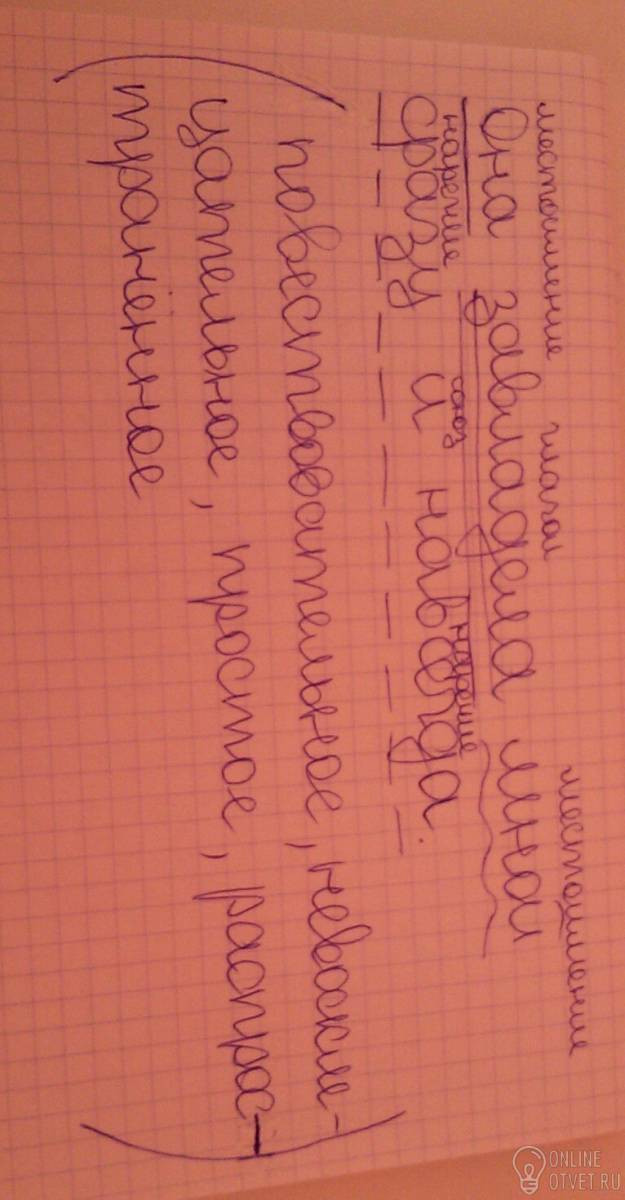 местоимение глагол местоимение
Она завладела мной
наречие союз наречие
сразу и навсегда.
(повествовательное, невоскли-
цательное, простое, распрос-
транённое)
ONLINE
OTVET.RU